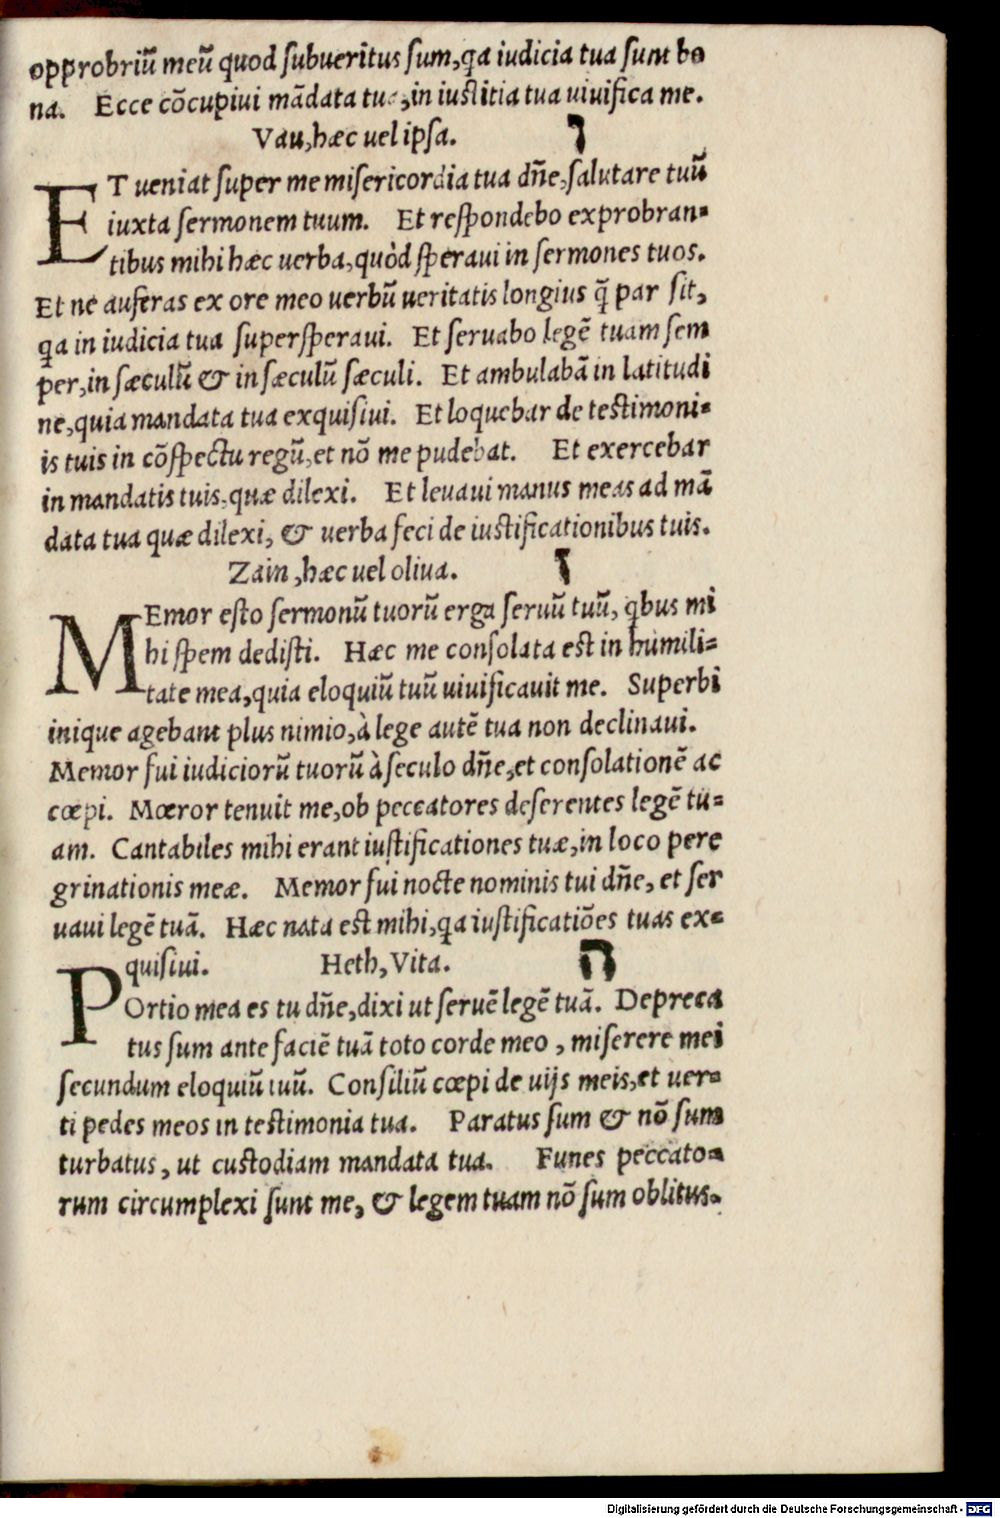 opprobriū meū quod subueritus sum, qa iudicia tua sunt bo
na. Ecce cōcupiui mādata tua, in iustitia tua uiuifica me.
Vau, hæc uel ipsa. ו
ET ueniat super me misericordia tua dñe, salutare tuū
iuxta sermonem tuum. Et respondebo exprobran⸗
tibus mihi hæc uerba, quòd speraui in sermones tuos.
Et ne auferas ex ore meo uerbū ueritatis longius q̃ par sit,
qa in iudicia tua supersperaui. Et seruabo legē tuam sem
per, in sæculū & in sæculū sæculi. Et ambulabā in latitudi
ne, quia mandata tua exquisiui. Et loquebar de testimoni⸗
is tuis in cōspectu regū, et nō me pudebat. Et exercebar
in mandatis tuis, quæ dilexi. Et leuaui manus meas ad mā
data tua quæ dilexi, & uerba feci de iustificationibus tuis.
Zain, hæc uel oliua. ז
MEmor esto sermonū tuorū erga seruū tuū, qbus mi
hi spem dedisti. Hæc me consolata est in humili⸗
tate mea, quia eloquiū tuū uiuificauit me. Superbi
inique agebant plus nimio, à lege autē tua non declinaui.
Memor fui iudiciorū tuorū à seculo dñe, et consolationē ac
cœpi. Mœror tenuit me, ob peccatores deserentes legē tu⸗
am. Cantabiles mihi erant iustificationes tuæ, in loco pere
grinationis meæ. Memor fui nocte nominis tui dñe, et ser
uaui legē tuā. Hæc nata est mihi, qa iustificatiōes tuas ex⸗
quisiui. Heth, Vita. ח
POrtio mea es tu dñe, dixi ut seruē legē tuā. Depreca
tus sum ante faciē tuā toto corde meo, miserere mei
secundum eloquiū tuū. Consiliū cœpi de uijs meis, et uer⸗
ti pedes meos in testimonia tua. Paratus sum & nō sum
turbatus, ut custodiam mandata tua. Funes peccato⸗
rum circumplexi sunt me, & legem tuam nō sum oblitus.
Digitalisierung gefördert durch die Deutsche Forschungsgemeinschaft - DFG